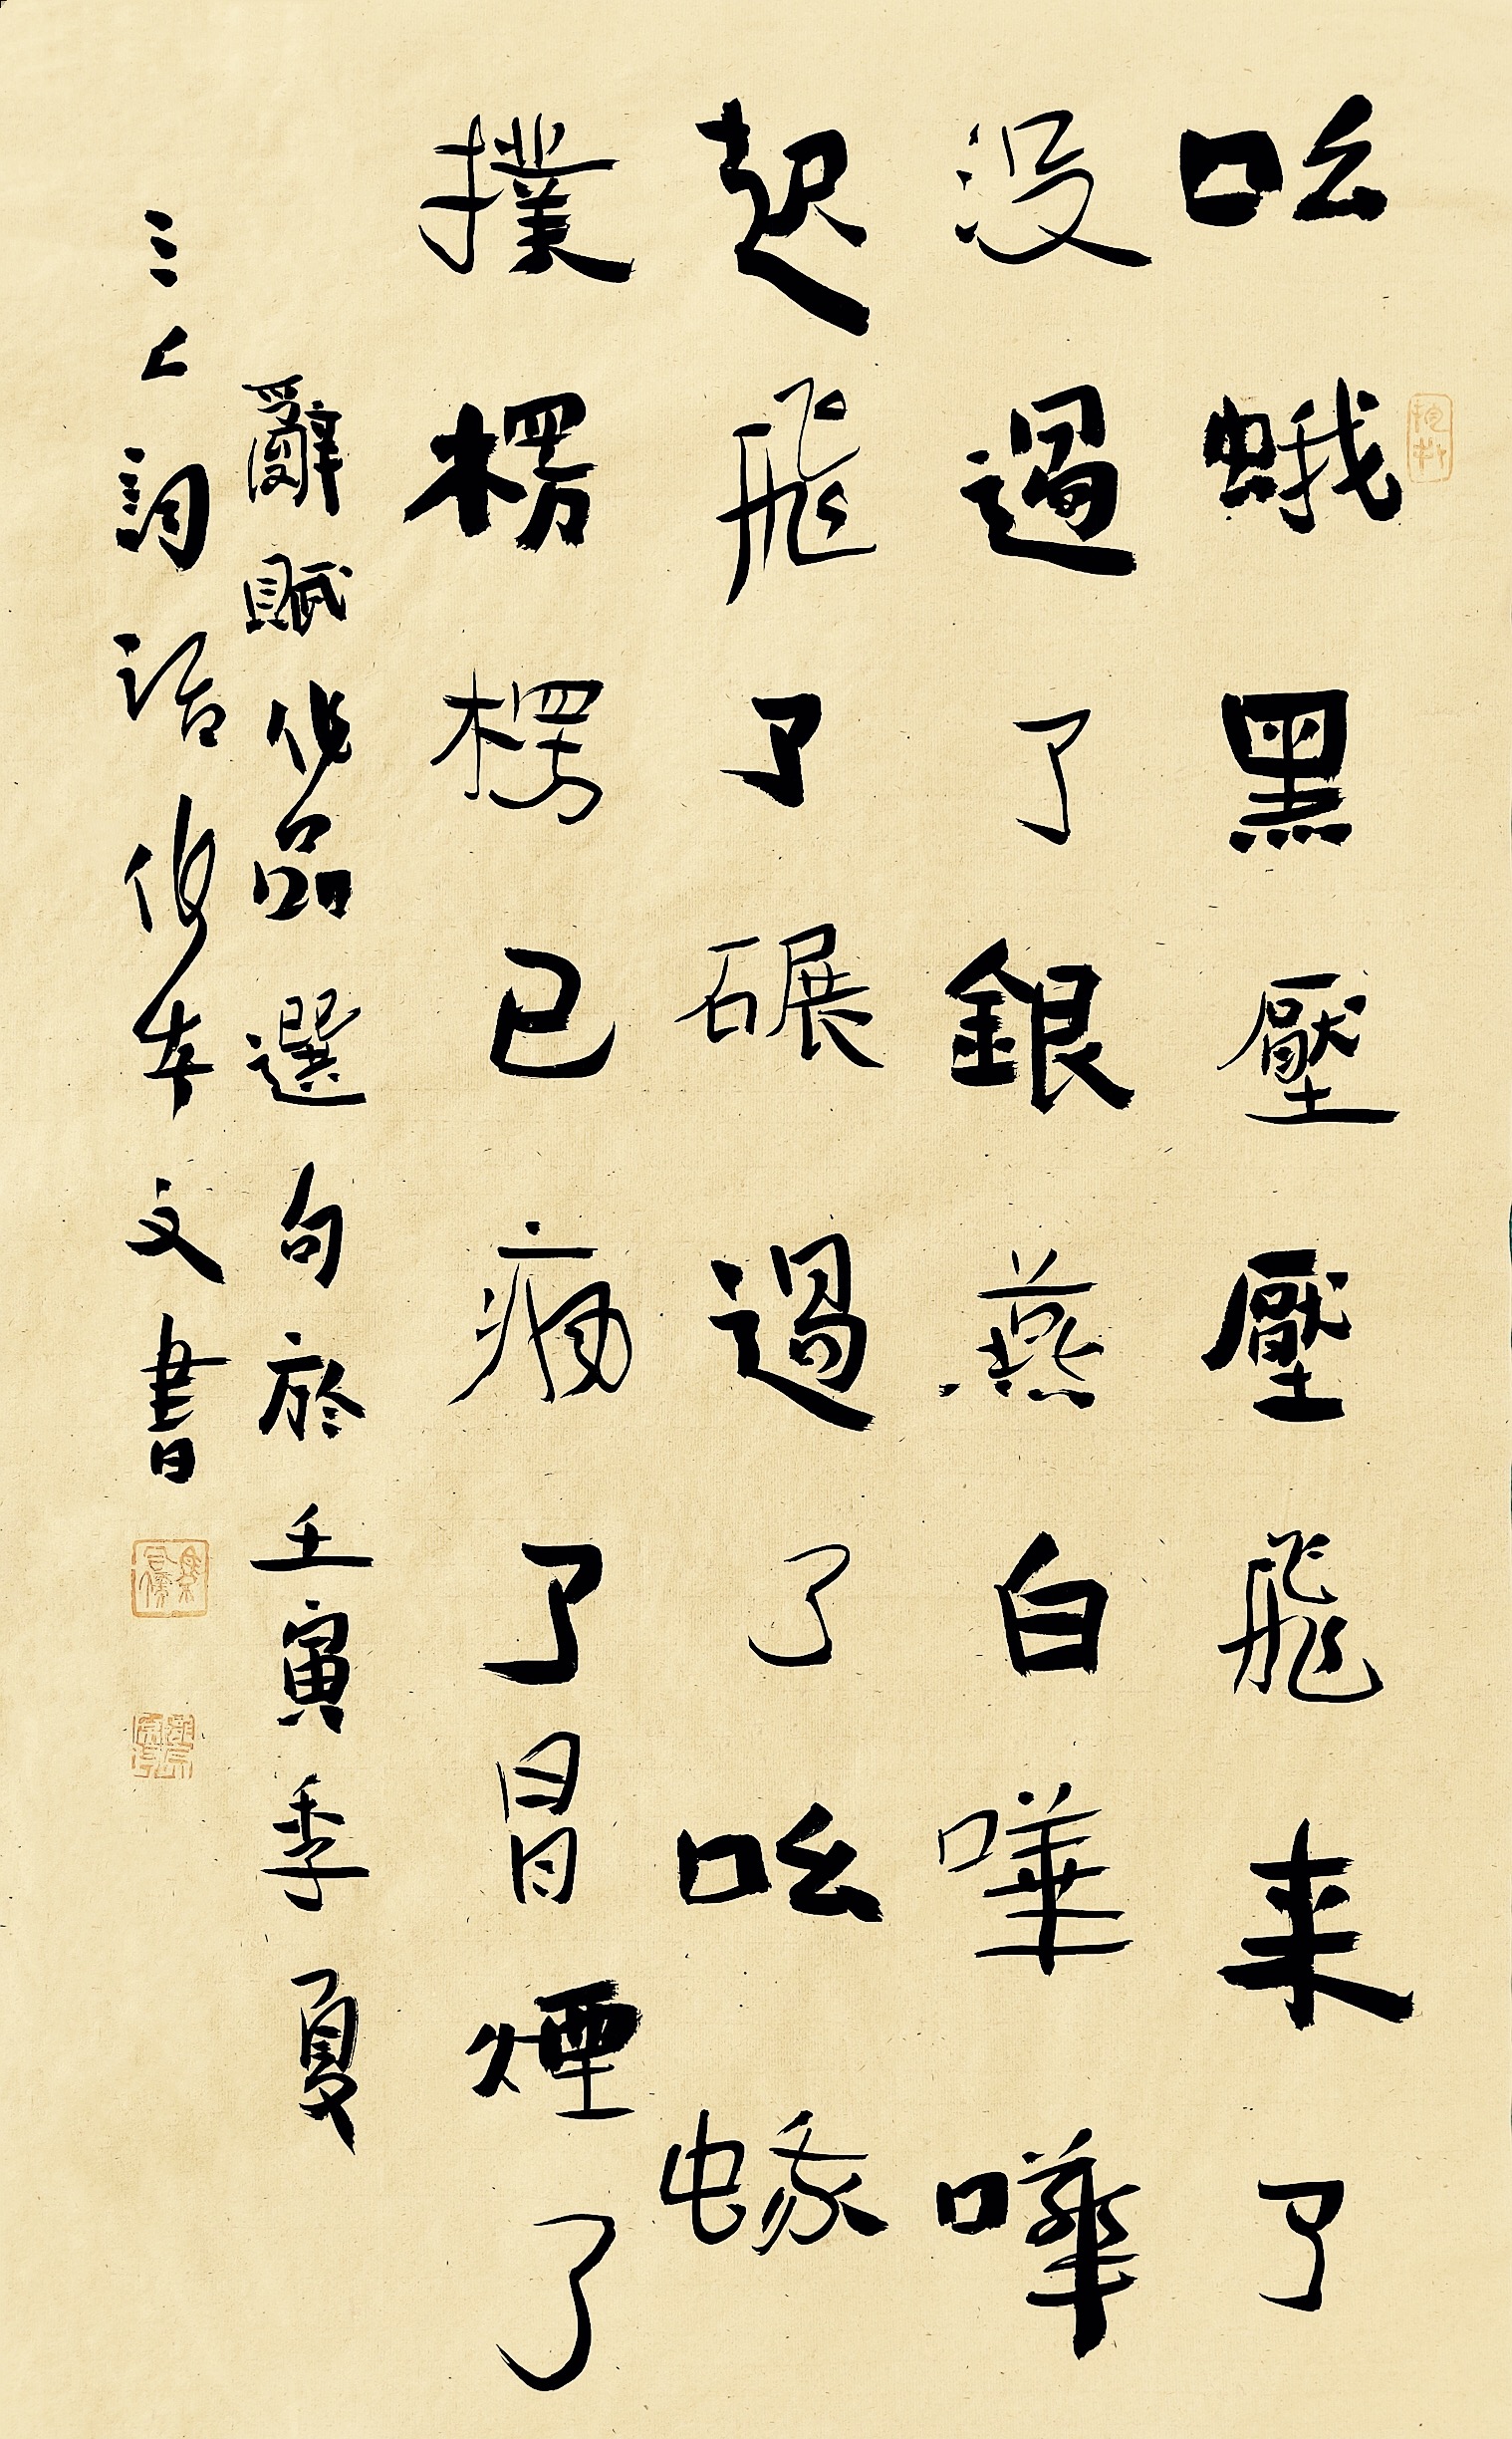 吆蛾黑壓壓飛来了
没過了銀燕白嘩嘩
起飛了碾過了吆蛾
撲楞楞已瘋了冒煙了
辭賦作品選句於壬寅季夏
三上詞話本文書